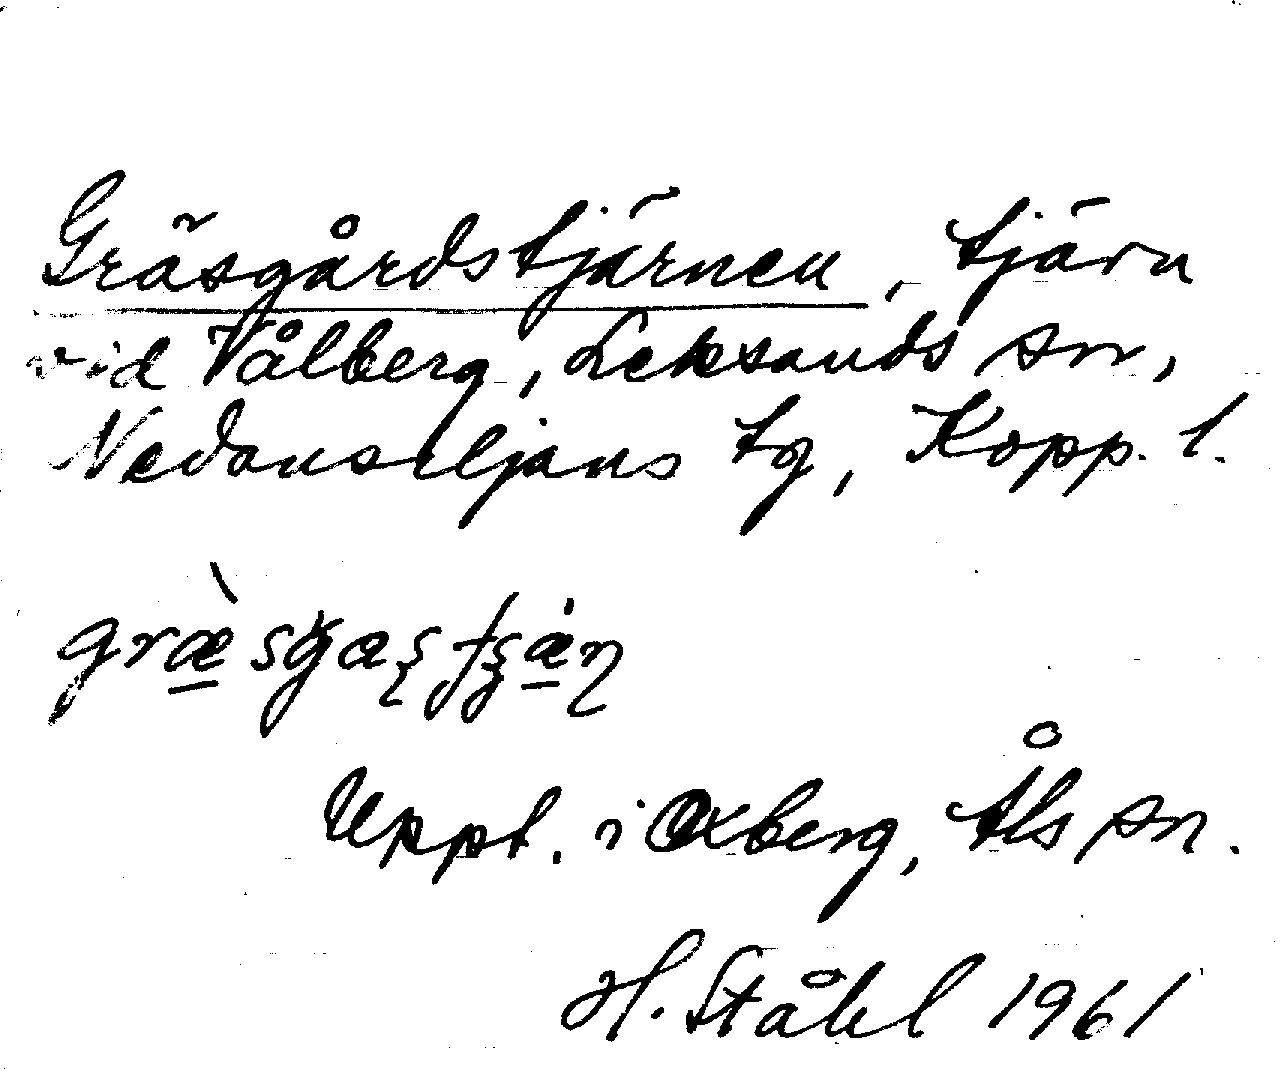 Gräsgårdstjärnen, tjärn
vid Vålberg, Leksands sn,
Nedansiljans tg, Kopp. l.
Uppt. i Oxberg, Åls sn.
H. Ståhl 1961